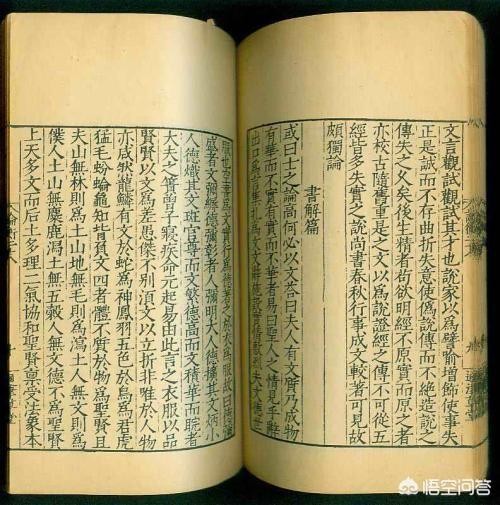 文言觀試觀試其才也說家以為譬喻增飾使事失
正是誠而不存曲折失意使偽說傳而不絕造說之
傳失之久矣後生精者苟欲明經不原實而原之者
亦校古隨舊重是之文以為說證經之傳不可從五
經皆多失實之說尚書春秋行事成文較著可見故
頗獨論
書解篇
或曰士之論高何必以文答曰夫人有文質乃成物
有華而不實有實而不華者易曰聖人之情見乎辭
出口為言集札為文文辭施設實情敷烈夫文德世
服也空書為文實行為德著之於衣為服故曰德彌
盛者文彌縟德彌彰者人彌明大人德擴其文炳小
人德熾其文斑官尊而文繁德高而文積華而睆者
大夫之簀曾子寢疾命元起易由此言之衣服以品
賢賢以文為差愚傑不別須文以立折非唯於人物
亦咸然龍鱗有文於蛇為神鳳羽五色於鳥為君虎
猛毛蚡蜦龜知背負文四者體不質於物為聖賢且
夫山無林則為土山地無毛則為瀉土人無文則為
僕人土山無麋鹿瀉土無五穀人無文德不為聖賢
上天多文而后土多理二氣協和聖賢稟受法象本
悟空问答